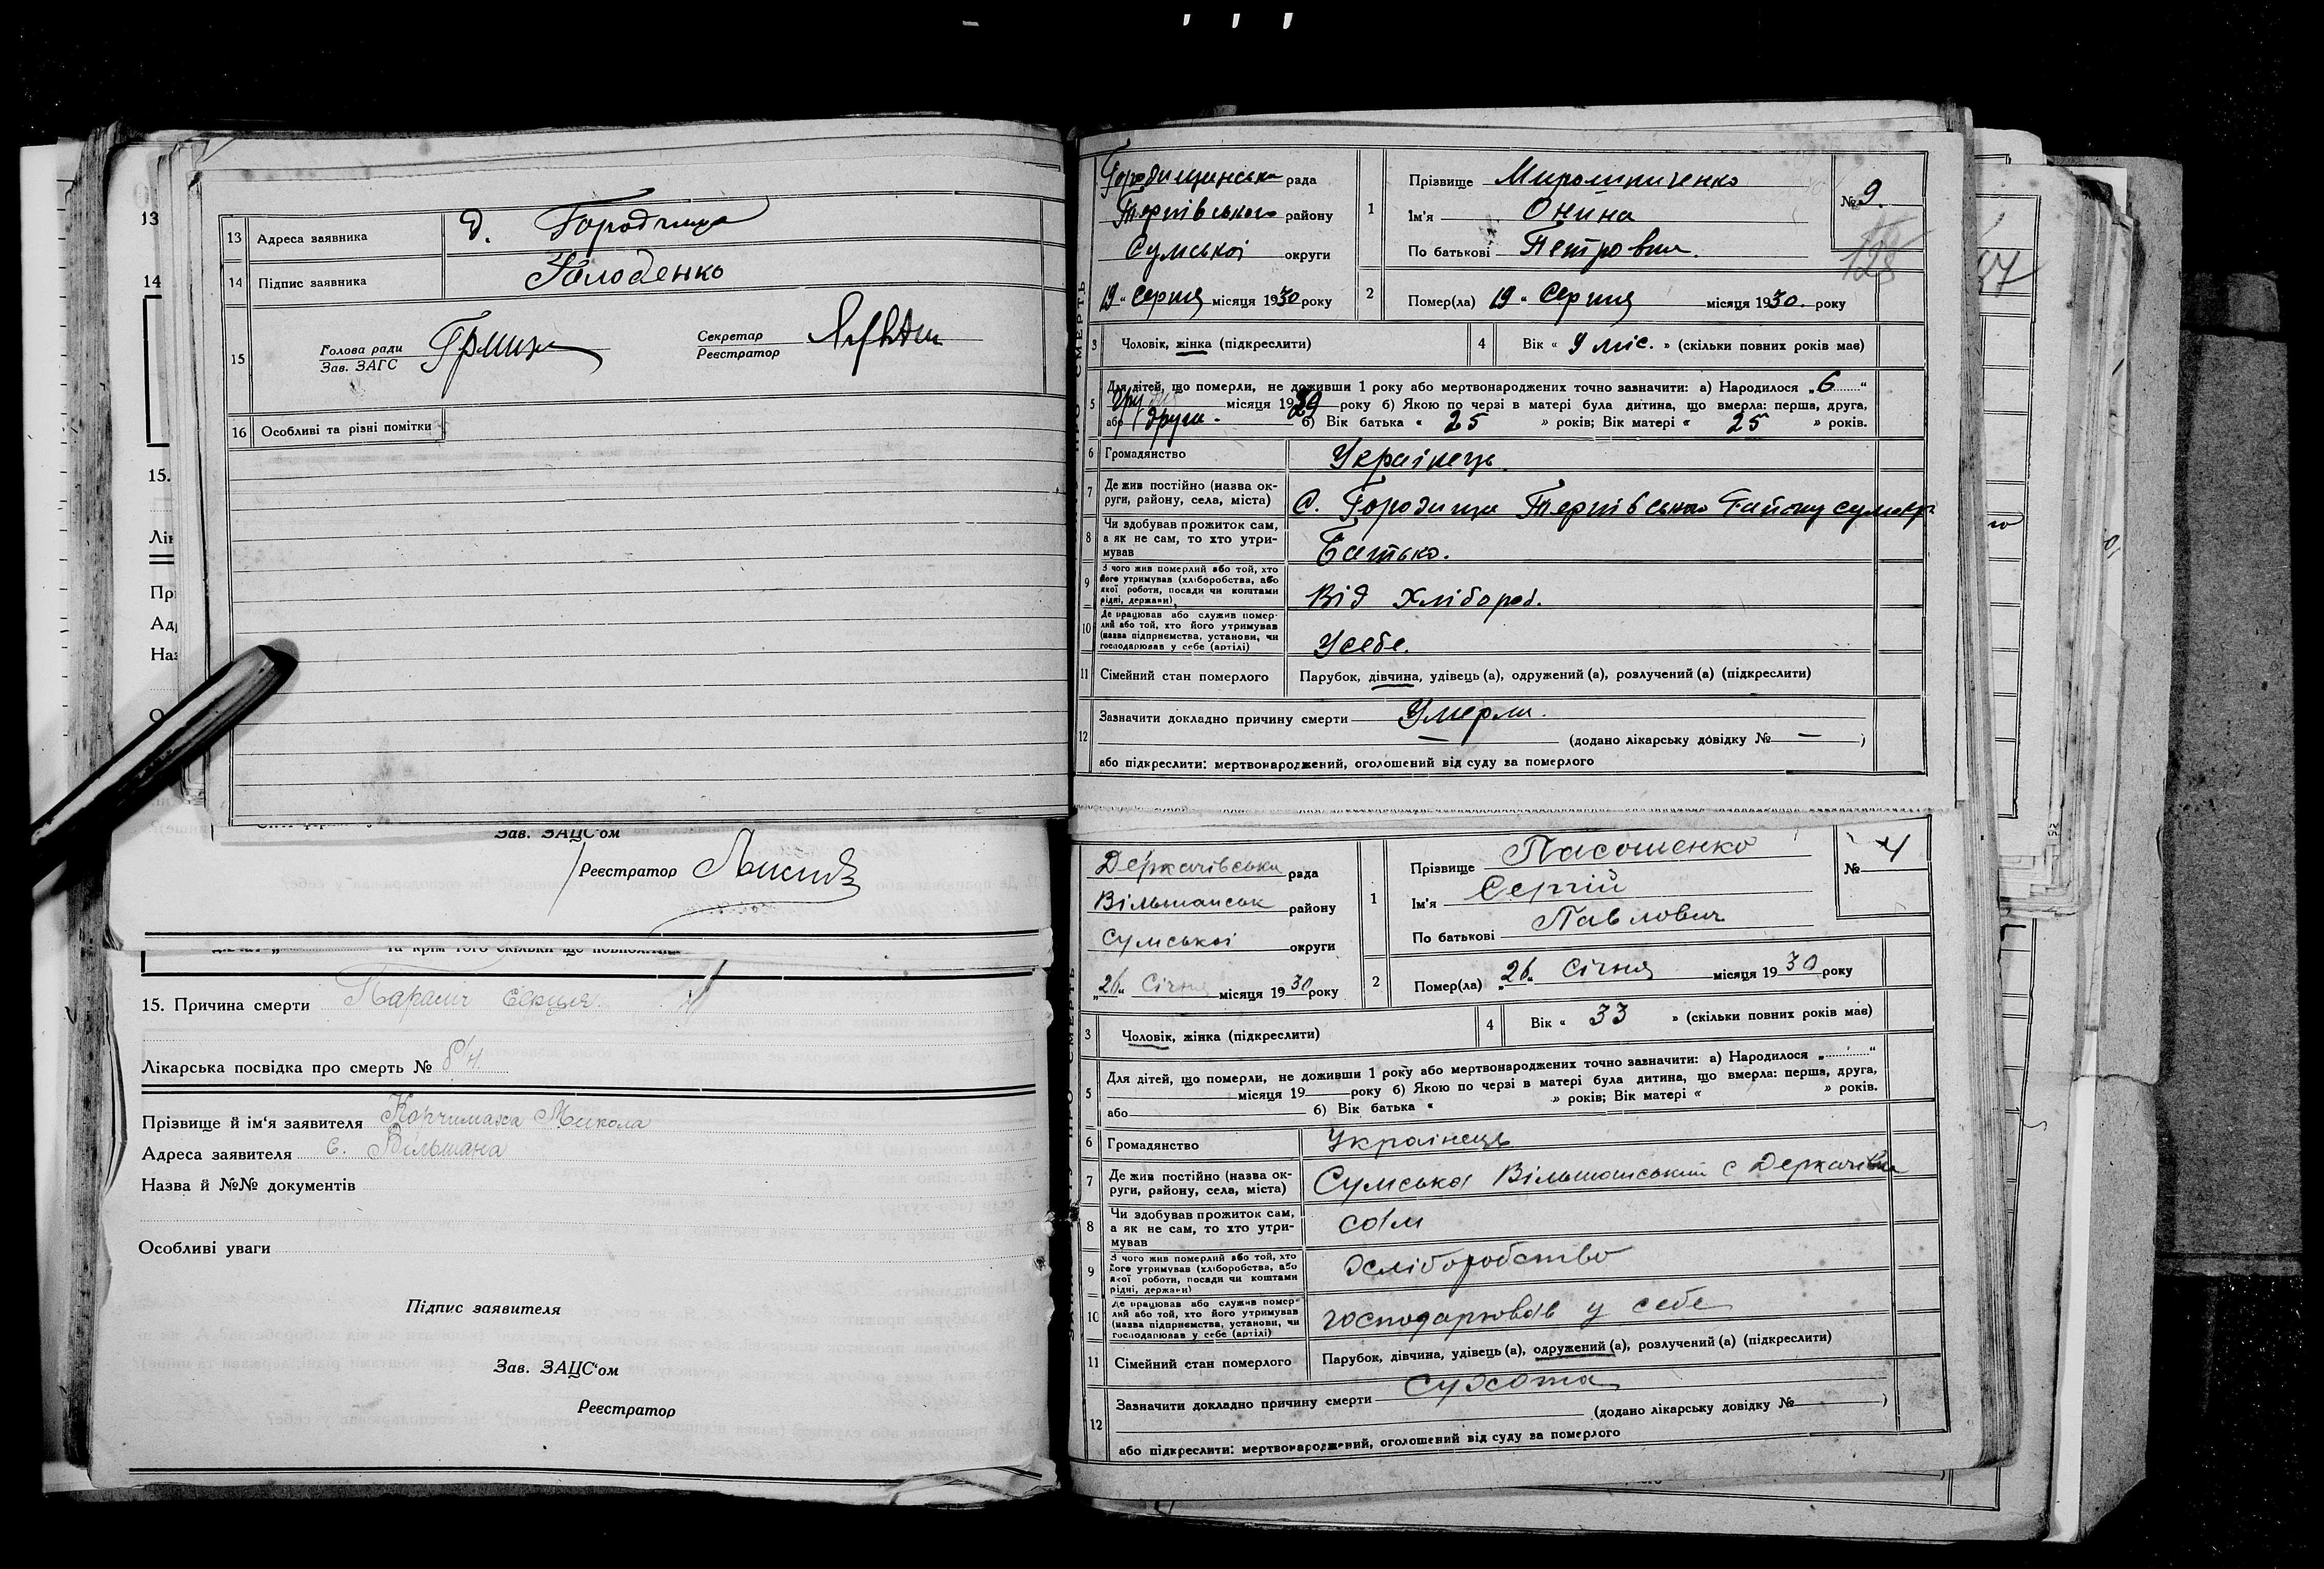 13
14
15.
Лік
При
Адр
Наз
13 Адреса заявника Д. Городище
14 Підпис заявника Голобенко
15 Голова ради
Зав. ЗАГС
Секретар
Реєстратор
16 Особливі та різні помітки
Зав. ЗАЦС'ом
Реєстратор
та крім того скільки ще
15. Причина смерти Параліч серця
Лікарська посвідка про смерть № б/н.
Прізвище й ім'я заявителя Микола
Адреса заявителя с. Вільшана
Назва й №№ документів
Особливі уваги
Підпис заявителя
Зав. ЗАЦС'ом
Реєстратор
Городищенська рада
Тернівського району
Сумської округи
19 " Серпня місяця 1930 року
1 Прізвище Мирошниченко
Ім'я
По батькові Петровна.
№ 9.
128
2 Помер(ла) 19 " Серпня місяця 1930. року
3 Чоловік, жінка (підкреслити)
4 Вік « 9 міс. » (скільки повних років має)
5 Для дітей, що померли, не доживши 1 року або мертвонароджених точно зазначити: а) Народилося „ 6 “
місяця 1929 року б) Якою по черзі в матері була дитина, що вмерла: перша, друга,
або друга. б) Вік батька « 25 » років; Вік матері « 25 » років.
6 Громадянство Українець.
7 Де жив постійно (назва ок-
руги, району, села, міста) С. Городище Тернівського Району
8 Чи здобував прожиток сам,
а як не сам, то хто утри-
мував Батько.
9 З чого жив померлий або той, хто
його утримував (хліборобства, або
якої роботи, посади чи коштами
рідні, держави) Від Хлібороб.
10 Де працював або служив помер-
лий або той, хто його утримував
(назва підприємства, установи, чи
господарював у себе (артілі) У себе.
11 Сімейний стан померлого Парубок, дівчина, удівець (а), одружений (а), розлучений (а) (підкреслити)
12 Зазначити докладно причину смерти Умерла.
(додано лікарську довідку № — )
або підкреслити: мертвонароджений, оголошений від суду за померлого
Деркачівська рада
Вільшанськ району
Сумської округи
„26“ Січня місяця 1930 року
1 Прізвище Пасошенко
Ім'я Сергій
По батькові Павлович
№ 4
2 Помер(ла) „26“ Січня місяця 1930 року
3 Чоловік, жінка (підкреслити)
4 Вік « 33 » (скільки повних років має)
5 Для дітей, що померли, не доживши 1 року або мертвонароджених точно зазначити: а) Народилося „ “
місяця 19 року б) Якою по черзі в матері була дитина, що вмерла: перша, друга,
або б) Вік батька « » років; Вік матері « » років.
6 Громадянство Українець
7 Де жив постійно (назва ок-
руги, району, села, міста) Сумська Вільшанський с Деркачівка
8 Чи здобував прожиток сам,
а як не сам, то хто утри-
мував сам
9 З чого жив померлий або той, хто
його утримував (хліборобства, або
якої роботи, посади чи коштами
рідні, держави) хліборобство
10 Де працював або служив помер-
лий або той, хто його утримував
(назва підприємства, установи, чи
господарював у себе (артілі) господарював у себе
11 Сімейний стан померлого Парубок, дівчина, удівець (а), одружений (а), розлучений (а) (підкреслити)
12 Зазначити докладно причину смерти Сухота
(додано лікарську довідку № )
або підкреслити: мертвонароджений, оголошений від суду за померлого